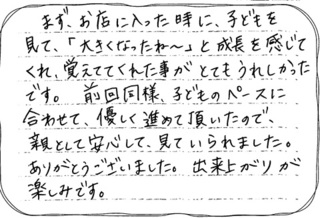 まず、お店に入った時に、子どもを
見て、「大きくなったね〜」と成長を感じて
くれ、覚えててくれた事がとてもうれしかった
です。 前回同様、子どものペースに
合わせて、優しく進めて頂いたので、
親として安心して、見ていられました。
ありがとうございました。出来上がりが
楽しみです。